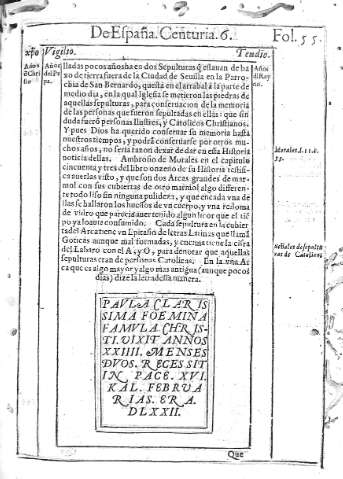 De España. Centuria. 6. Fol. 55.
xp̄o Vigilio. Teudio.
Años de Christo
Años del Papa.
Años del Rey.
lladas pocos años ha en dos Sepulturas q̃ estauan de ba
xo de tierra fuera de la Ciudad de Seuilla en la Parro
chia de San Bernardo, que está en el arrabal á la parte de
medio dia, en la qual Iglesia se metieron las piedras de
aquellas sepulturas, para conseruacion de la memoria
de las personas que fueron sepultadas en ellas: que sin
duda fueró personas Illustres, y Catolicos Christianos.
Y pues Dios ha querido conseruar su memoria hasta
nuestros tiempos, y podrá conseruarse por otros mu
chos años, no seria razon dexar de dar en esta Historia
noticia dellas. Ambrosio de Morales en el capitulo
cincuenta y tres del libro onzeno de su Historia testifi
ca auerlas visto, y que son dos Arcas grandes de mar
mol con sus cubiertas de otro marmol algo differen-
te todo liso sin ninguna pulideza, y que en cada vna de
ellas se hallaron los huessos de vn cuerpo, y vna redoma
de vidro que parecia auer tenido algun licor que el tiē
po ya lo auia consumido. Cada sepultura en la cubier
ta del Arca tiene vn Epitafio de letras Latinas que llamā
Goticas aunque mal formadas, y encima tiene la cifra
del Labaro con el A, y O, para denotar que aquellas
sepulturas eran de personas Catolicas. En la vna Ar
ca que es algo mayor y algo mas antigua (aunque pocos
dias) dize la letra desta manera.
Morales l. 11. c.
53.
Señales de sepultu
ras de Catolicos
PAVLA. CLARIS
SIMA FOEMINA
FAMVLA. CHRIS-
TI. VIXIT ANNOS
XXIIII. MENSES
DVOS. RECESSIT
IN PACE. XVI.
KAL. FEBRVA
RIAS. ERA.
DLXXII.
Que